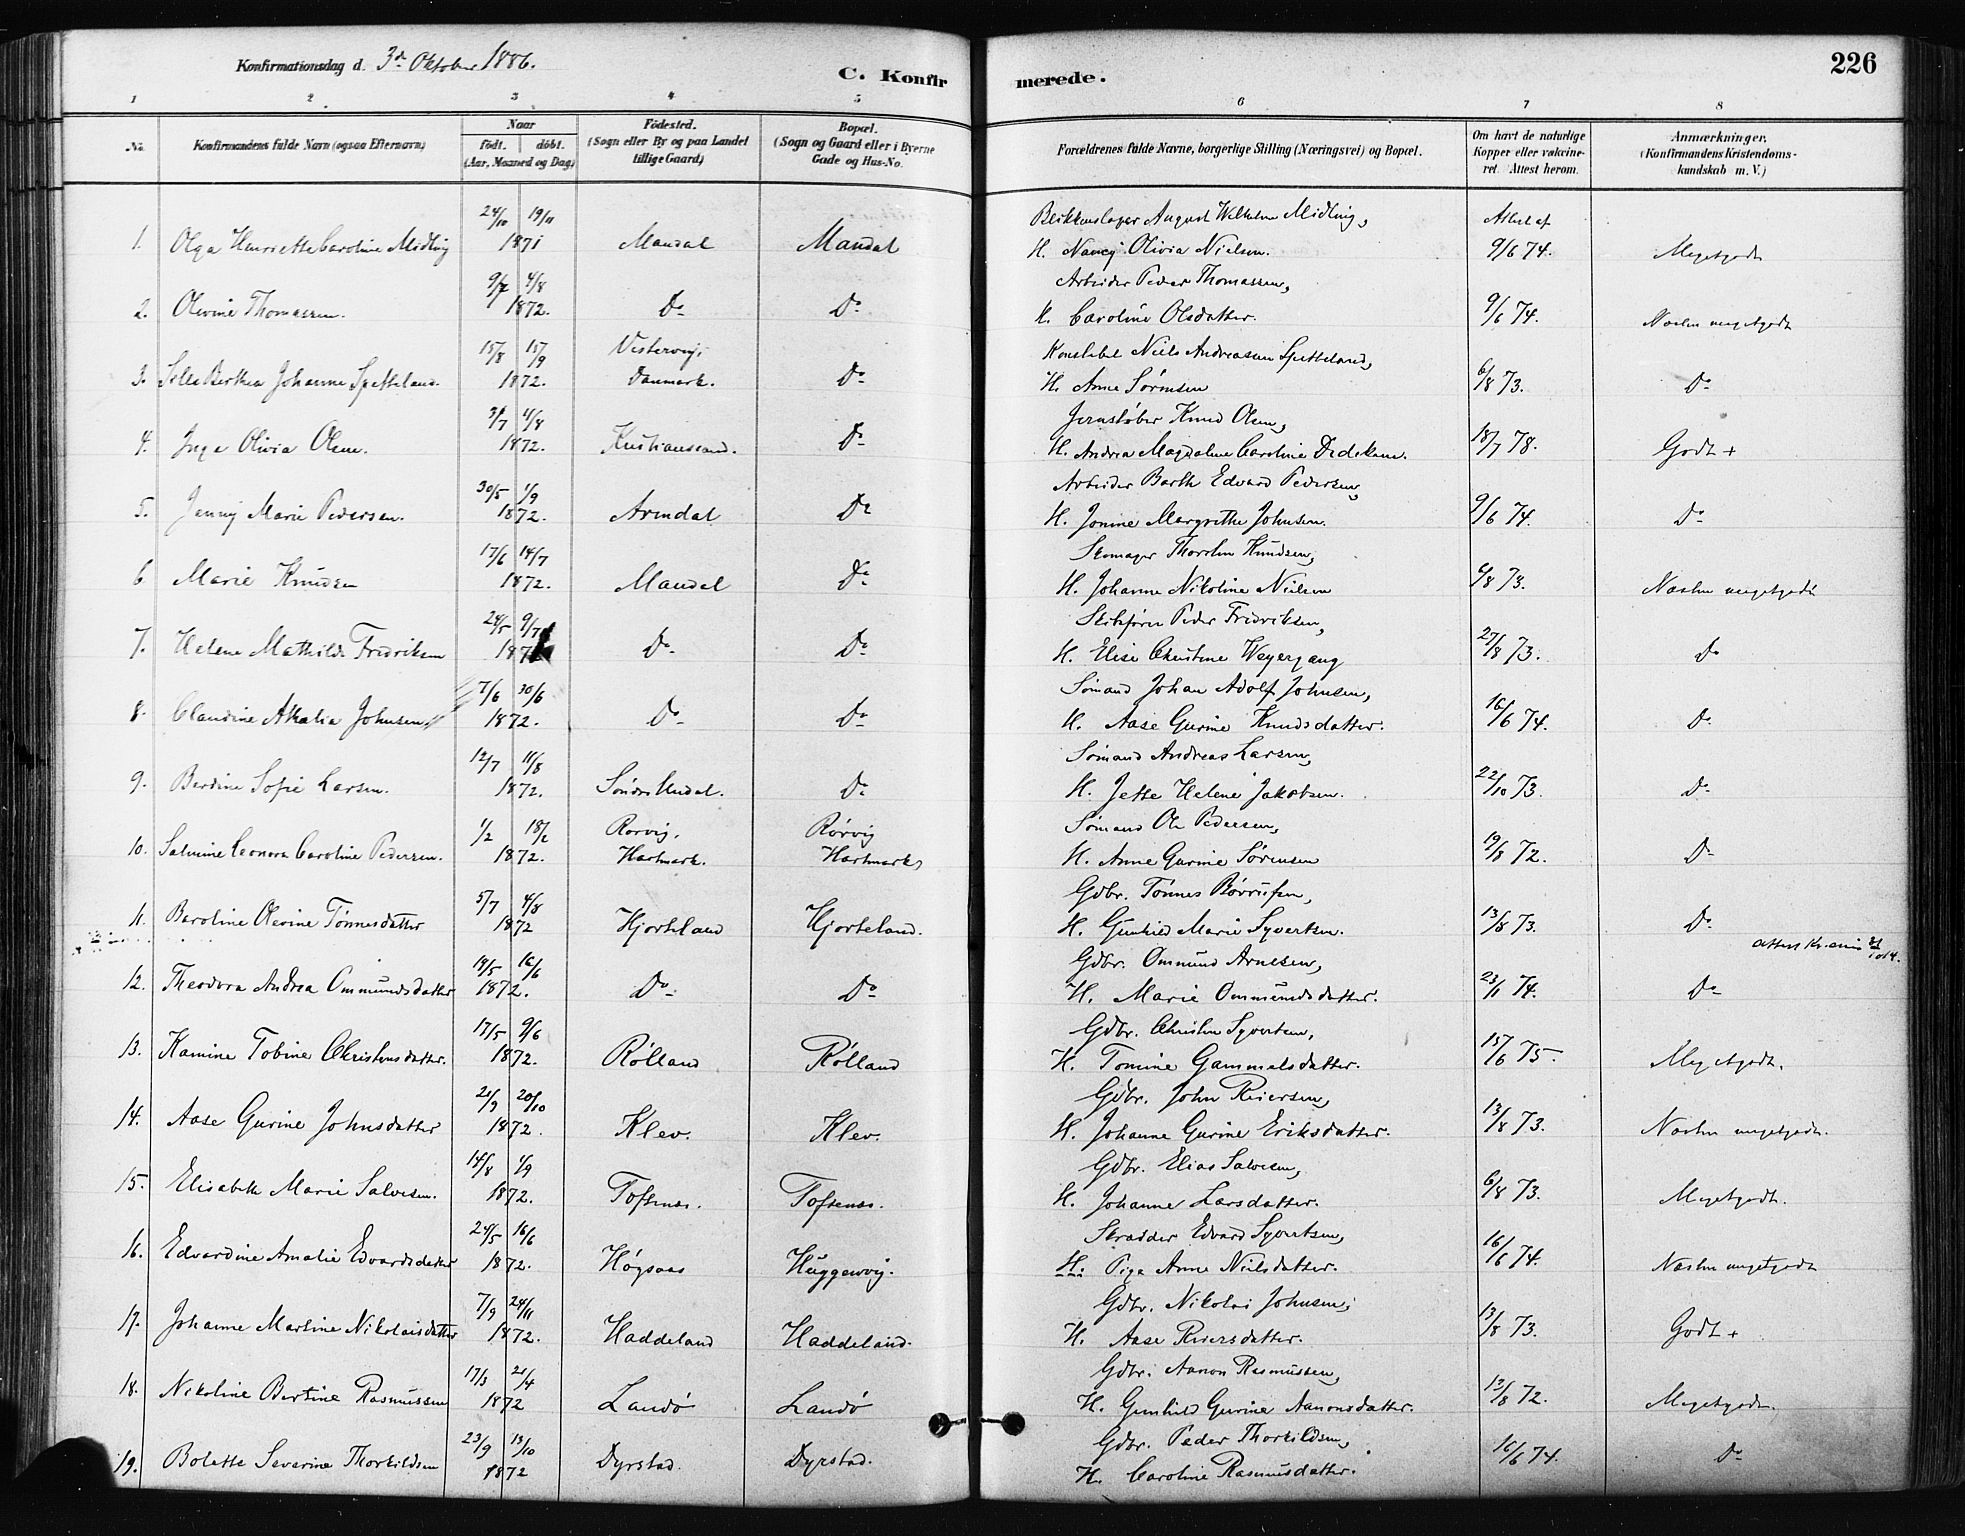 Konfirmationsdag d. 3de Oktober 1886.
C. Konfirmerede.
226
1 2 3 4 5 6 7 8
No.
Konfirmandens fulde Navn (ogsaa Efternavn)
Naar
födt. döbt.
(Aar, Maaned og Dag)
Födested.
(Sogn eller By og paa Landet tillige Gaard)
Bopæl.
(Sogn og Gaard eller i Byerne Gade og Hus-No.
Forældrenes fulde Navne, borgerlige Stilling (Næringsvei) og Bopæl.
Om havt de naturlige Kopper eller vakcineret. Attest herom.
Anmærkninger.
(Konfirmandens Kristendomskundskab m. V.)
24/10 19/11 Blikkenslager August Wilhelm Midling, Attest af
1. Olga Henriette Caroline Midling 1871 Mandal Mandal H. Nancy Olivia Nielsen. 9/6 74. Megetgodt
9/7 4/8 Arbeider Peder Thomassen,
2. Olevine Thomassen. 1872. Do Do H. Caroline Olsdatter. 9/6 74. Næsten megetgodt
15/8 15/9 Vestervig, Konstabel Niels Andreasen Spetteland,
3. Selle Berthea Johanne Spetteland. 1872. Danmark. Do H. Anne Sørensen 6/8 73. Do
31/7 4/8 Jernstøber Knud Olsen,
4. Inga Olivia Olsen. 1872. Kristianssand. Do H. Andrea Magdalene Caroline Dedekam. 18/7 78. Godt +
30/5 1/9 Arbeider Barth Edvard Pedersen,
5. Jenny Marie Pedersen. 1872. Arendal Do H. Jonine Margrethe Johnsen. 9/6 74. Do
17/6 14/7 Skomager Thorsten Knudsen,
6. Marie Knudsen 1872. Mandal Do H. Johanne Nikoline Nielsen 6/8 73. Næsten megetgodt
24/5 9/7 Skibsfører Peder Fredriksen,
7. Helene Mathilde Fredriksen 1872 Do Do H. Elise Christine Weyergang 27/8 73. Do
7/6 30/6 Sømand Johan Adolf Johnsen,
8. Claudine Attalia Johnsen. 1872. Do Do H. Aase Gurine Knudsdatter. 16/6 74. Do
12/7 11/8 Sømand Andreas Larsen,
9. Berdine Sofie Larsen. 1872. Søndre Undal. Do H. Jette Helene Jakobsen. 22/10 73. Do
1/2 18/2 Rørvig, Rørvig Sømand Ole Pedersen,
10. Salmine Leonora Caroline Pedersen. 1872. Hartmark. Hartmark, H. Anne Gurine Sørensen 19/8 72. Do
5/7 4/8 Gdbr. Tønnes Børrufsen,
11. Baroline Olevine Tønnesdatter 1872 Hjorteland Hjorteland. H. Gunhild Marie Syvertsen. 13/8 73. Do
19/5 16/6 Gdbr. Ommund Arnesen,
12. Theodora Andrea Ommundsdatter 1872. Do Do H. Marie Ommundsdatter. 23/11 74. Do
17/5 9/6 Gdbr. Christen Syvertsen,
13. Kamine Tobine Christensdatter. 1872. Rølland Rølland H. Tomine Gammelsdatter. 15/6 75. Megetgodt.
21/9 20/10 Gdbr. John Reiersen,
14. Aase Gurine Johnsdatter 1872. Klev. Klev. H. Johanne Gurine Eriksdatter. 13/8 73. Næsten megetgodt.
14/8 1/9 Gdbr. Elias Salvesen,
15. Elisabeth Marie Salvesen. 1872. Toftenes. Toftenes. H. Johanne Larsdatter. 6/8 73. Megetgodt.
24/5 16/6 Skrædder Edvard Syvertsen,
16. Edvardine Amalie Edvardsdatter 1872. Høgsaas Huggenvig. H. Pige Anne Nielsdatter. 16/6 74. Næsten megetgodt
7/9 24/11 Gdbr. Nikolai Johnsen,
17. Johanne Martine Nikolaisdatter 1872. Haddeland Haddeland. H. Aase Reiersdatter. 13/8 73. Godt +
17/3 21/4 Gdbr. Aanon Rasmussen,
18. Nikoline Bertine Rasmussen 1872 Landø Landø H. Gunhild Gurine Aanonsdatter. 12/8 72. Megetgodt.
23/9 13/10 Gdbr. Peder Thorkildsen,
19. Bolette Severine Thorkildsen 1872 Dyrstad. Dyrstad. H. Caroline Rasmusdatter. 16/6 74. Do